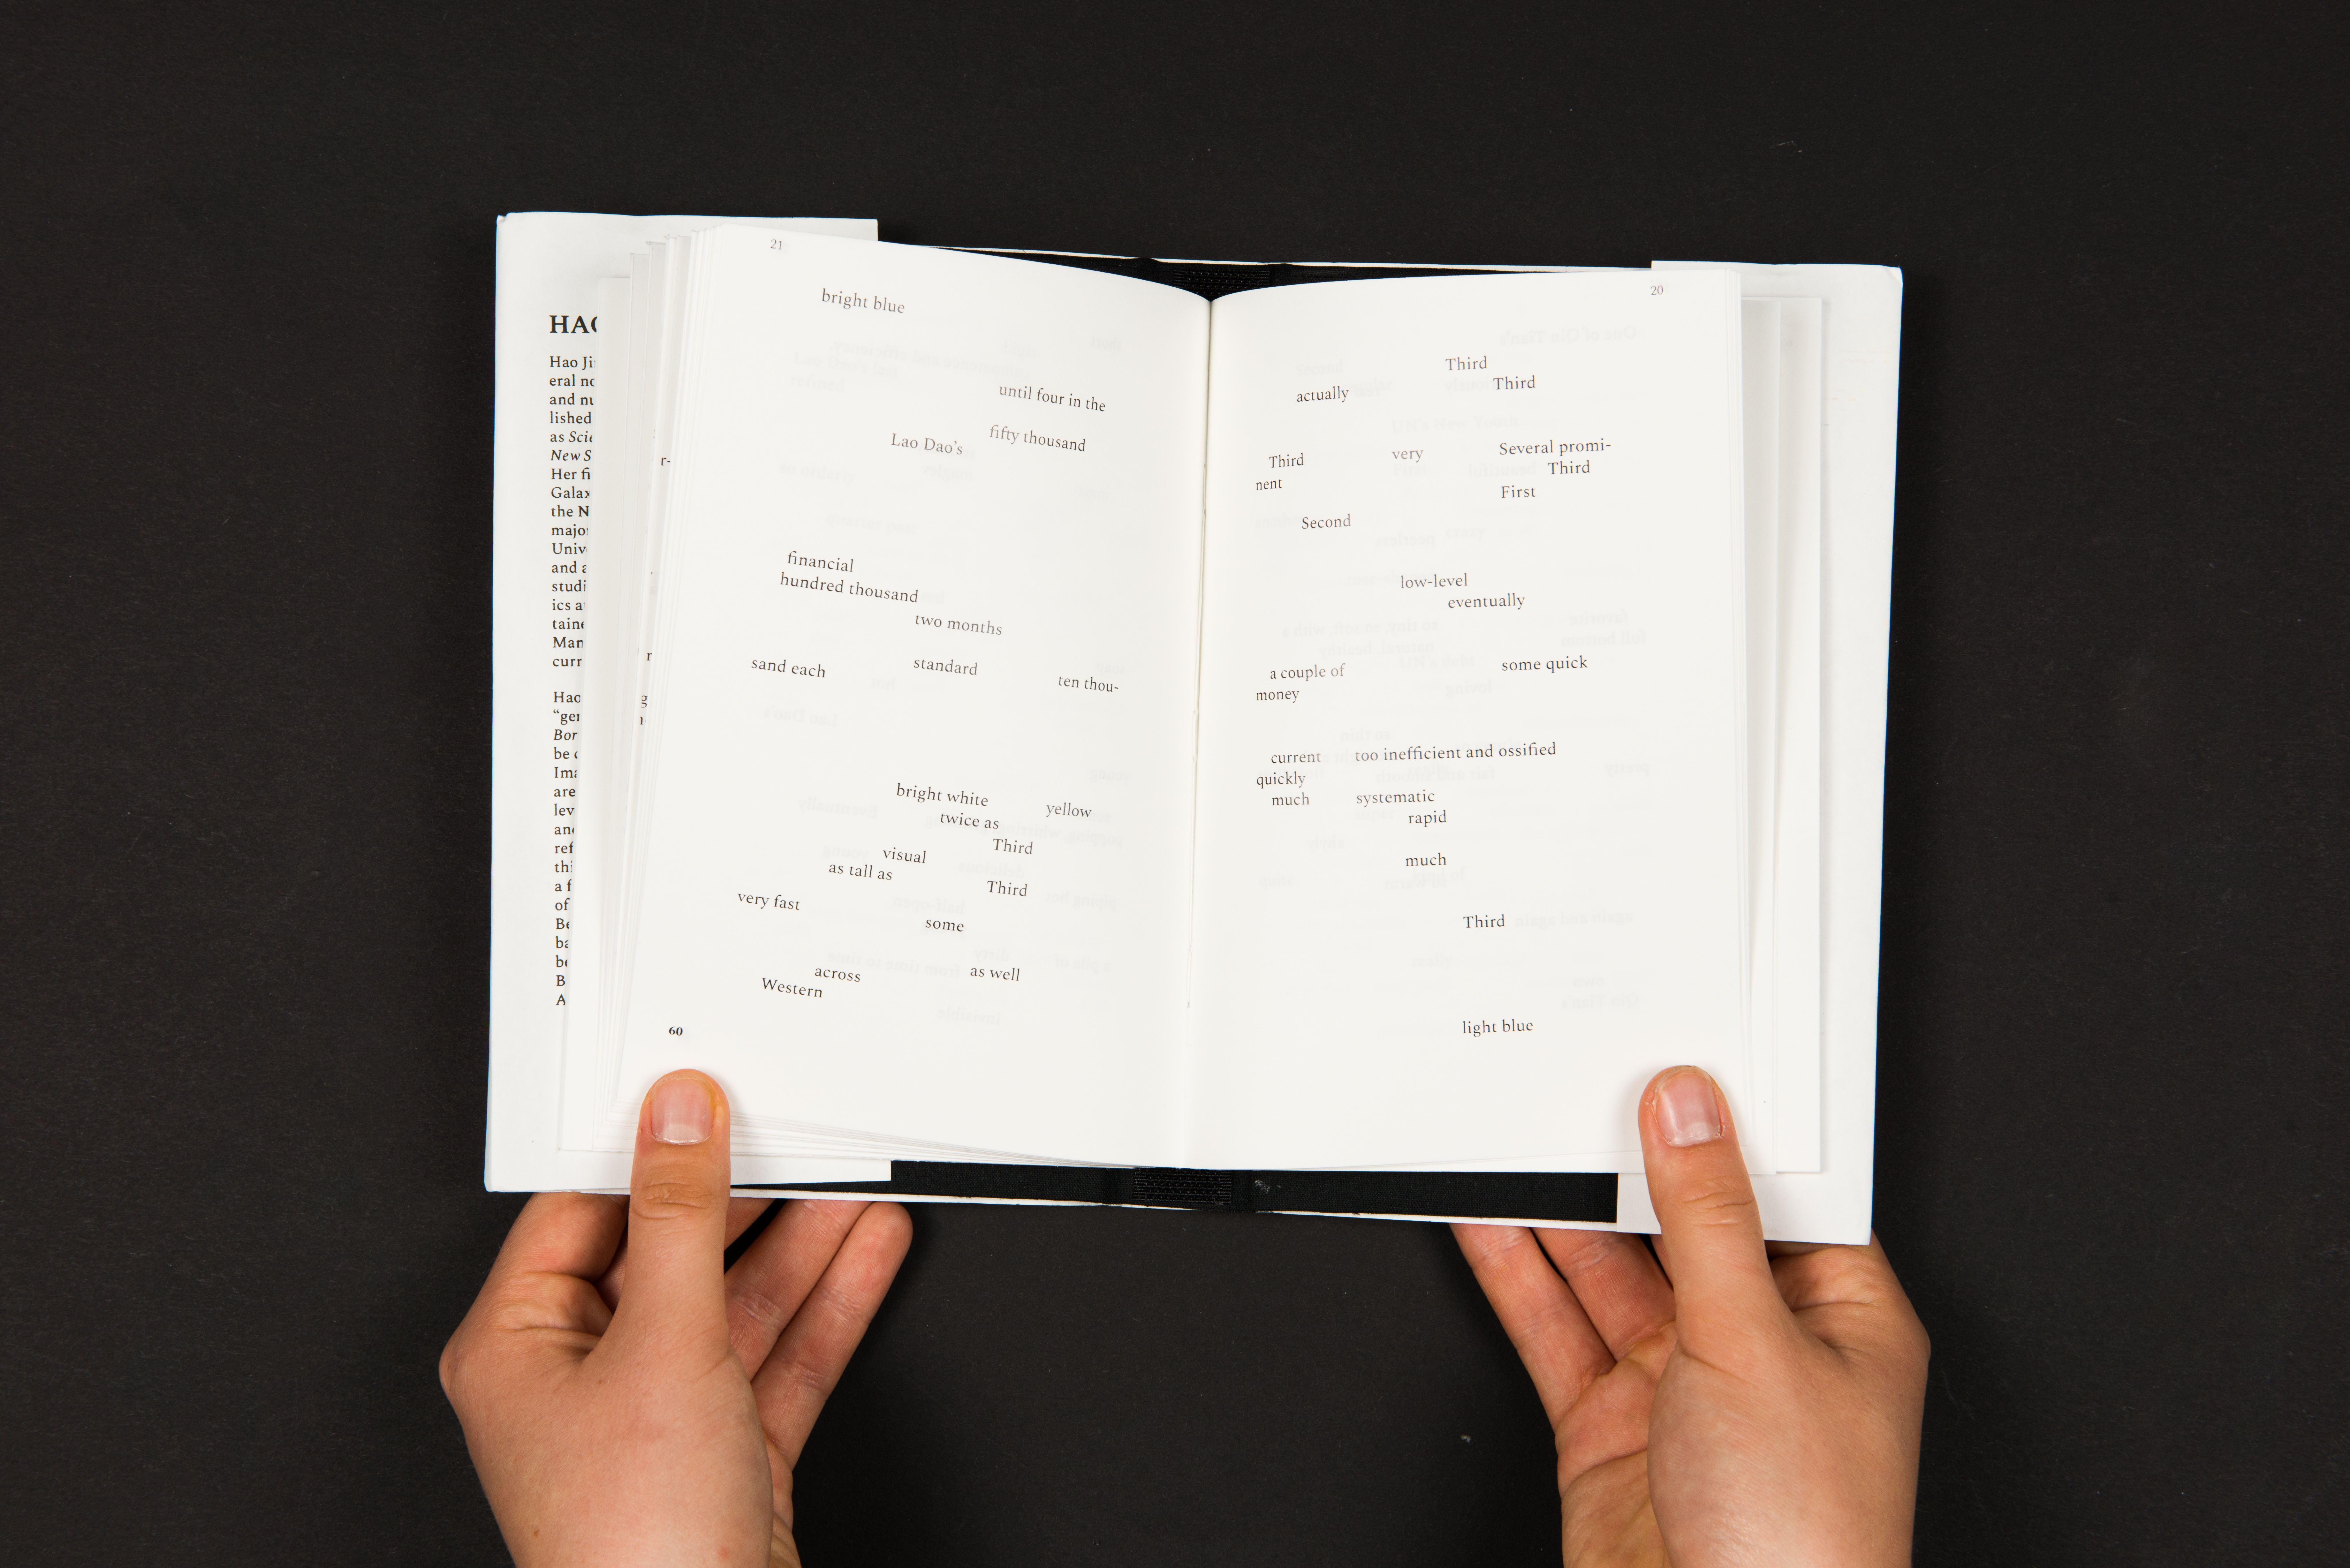 HAO
Hao Ji
eral no
and nu
lished
as Scie
New S
Her fi
Galax
the N
major
Univ
and a
studi
ics a
taine
Man
curr
Hao
“gen
Bor
be c
Ima
are
lev
and
ref
thi
a f
of
Be
ba
be
B
A
r-
r
g
21
bright blue
until four in the
Lao Dao’s fifty thousand
financial
hundred thousand
two months
sand each standard ten thou-
bright white yellow
twice as
visual Third
as tall as Third
very fast
some
across as well
Western
60
20
Third
actually Third
Third very Several promi-
nent Third
First
Second
low-level
eventually
a couple of some quick
money
current too inefficient and ossified
quickly
much systematic
rapid
much
Third
light blue